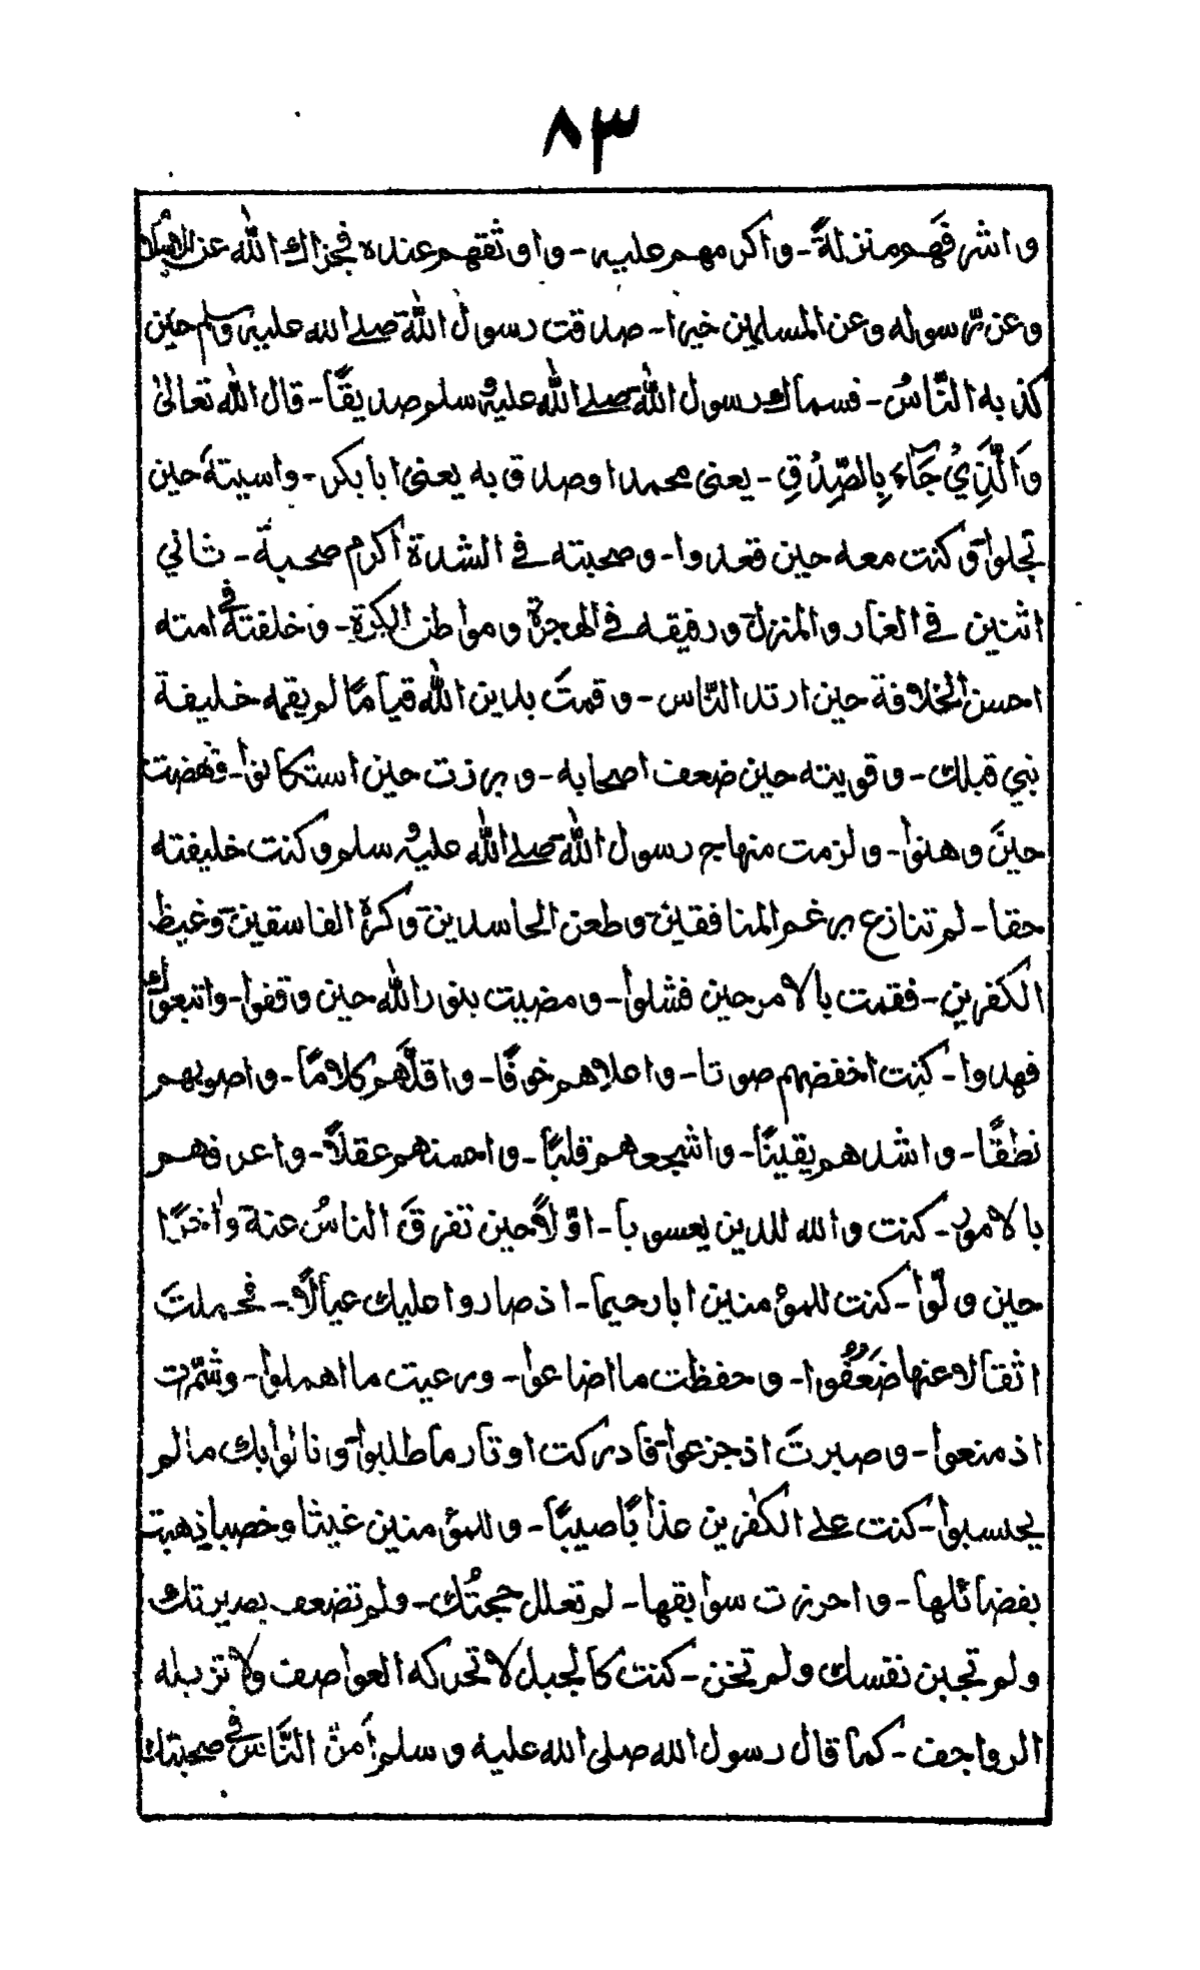 ٨٣
واشرفَهم منزلةً - واكرمهم عليه - واوثقهم عنده فجزاك الله عن الاسلام
وعن رّسوله وعن المسلمين خيرا - صدقت رسول الله صلے الله عليه وسلم حين
كذبه النّاسُ - فسماك رسول الله صلے الله عليه وسلم صديقًا - قال الله تعالیٰ
وَالَّذِيْ جَآءَ بِالصِّدْقِ - يعنی محمدا وصدق به يعنی ابا بكر - واسيتهٗ حين
تجلوا وكنت معه حين قعدوا - وصحبته فے الشدة اكرم صحبة - ثاني
اثنين فے الغار والمنزل ورفيقه فے الهجرة ومواطن الكرة - وخلفته فے امته
احسن الخلافة حين ارتد النّاس - وقمتَ بدين الله قيامًا لم يقمه خليفة
نبي قبلك - وقويته حين ضعف اصحابه - وبرزت حين استكانوا - ونهضت
حينَ وهنوا - ولزمت منهاج رسول الله صلے الله عليه وسلم وكنت خليفته
حقا - لم تنازع برغم المنافقين وطعن الحاسدين وكره الفاسقين وغيظ
الكفرين - فقمت بالامر حين فشلوا - ومضيت بنور الله حين وقفوا - واتبعوك
فهدوا - كنت اخفضهم صوتا - واعلاهم خوفًا - واقلَّهم كلامًا - واصوبهم
نطقًا - واشدهم يقينًا - واشجعهم قلبًا - واحسنهم عقلاً - واعرفهم
بالامور - كنت والله للدين يعسوبا - اوّلاً حين تفرقَ الناسُ عنة واٰخرًا
حين ولّوا - كنت للمؤمنين ابا رحيما - اذ صاروا عليك عيالاً - فحملتَ
اثقالا عنها ضَعُفُوا - وحفظت ما اضاعوا - ورعيت ما اهملوا - وشمّرت
اذ منعوا - وصبرتَ اذ جزعوا فادركت اوتار ما طلبوا ونالوا بك ما لم
يحسبوا - كنت علے الكٰفرين عذابًا صيبًا - وللمؤمنين غيثا وخصبا ذهبت
بفضائلها - واحرزت سوابقها - لم تعلل حجتُك - ولم تضعف بصيرتك
ولم تجبن نفسك ولم تخن - كنت كالجبل لا تحركه العواصف ولا تزيله
الرواجف - كما قال رسول الله صلی الله عليه وسلم اَمنُّ النَّاس فے صحبتك